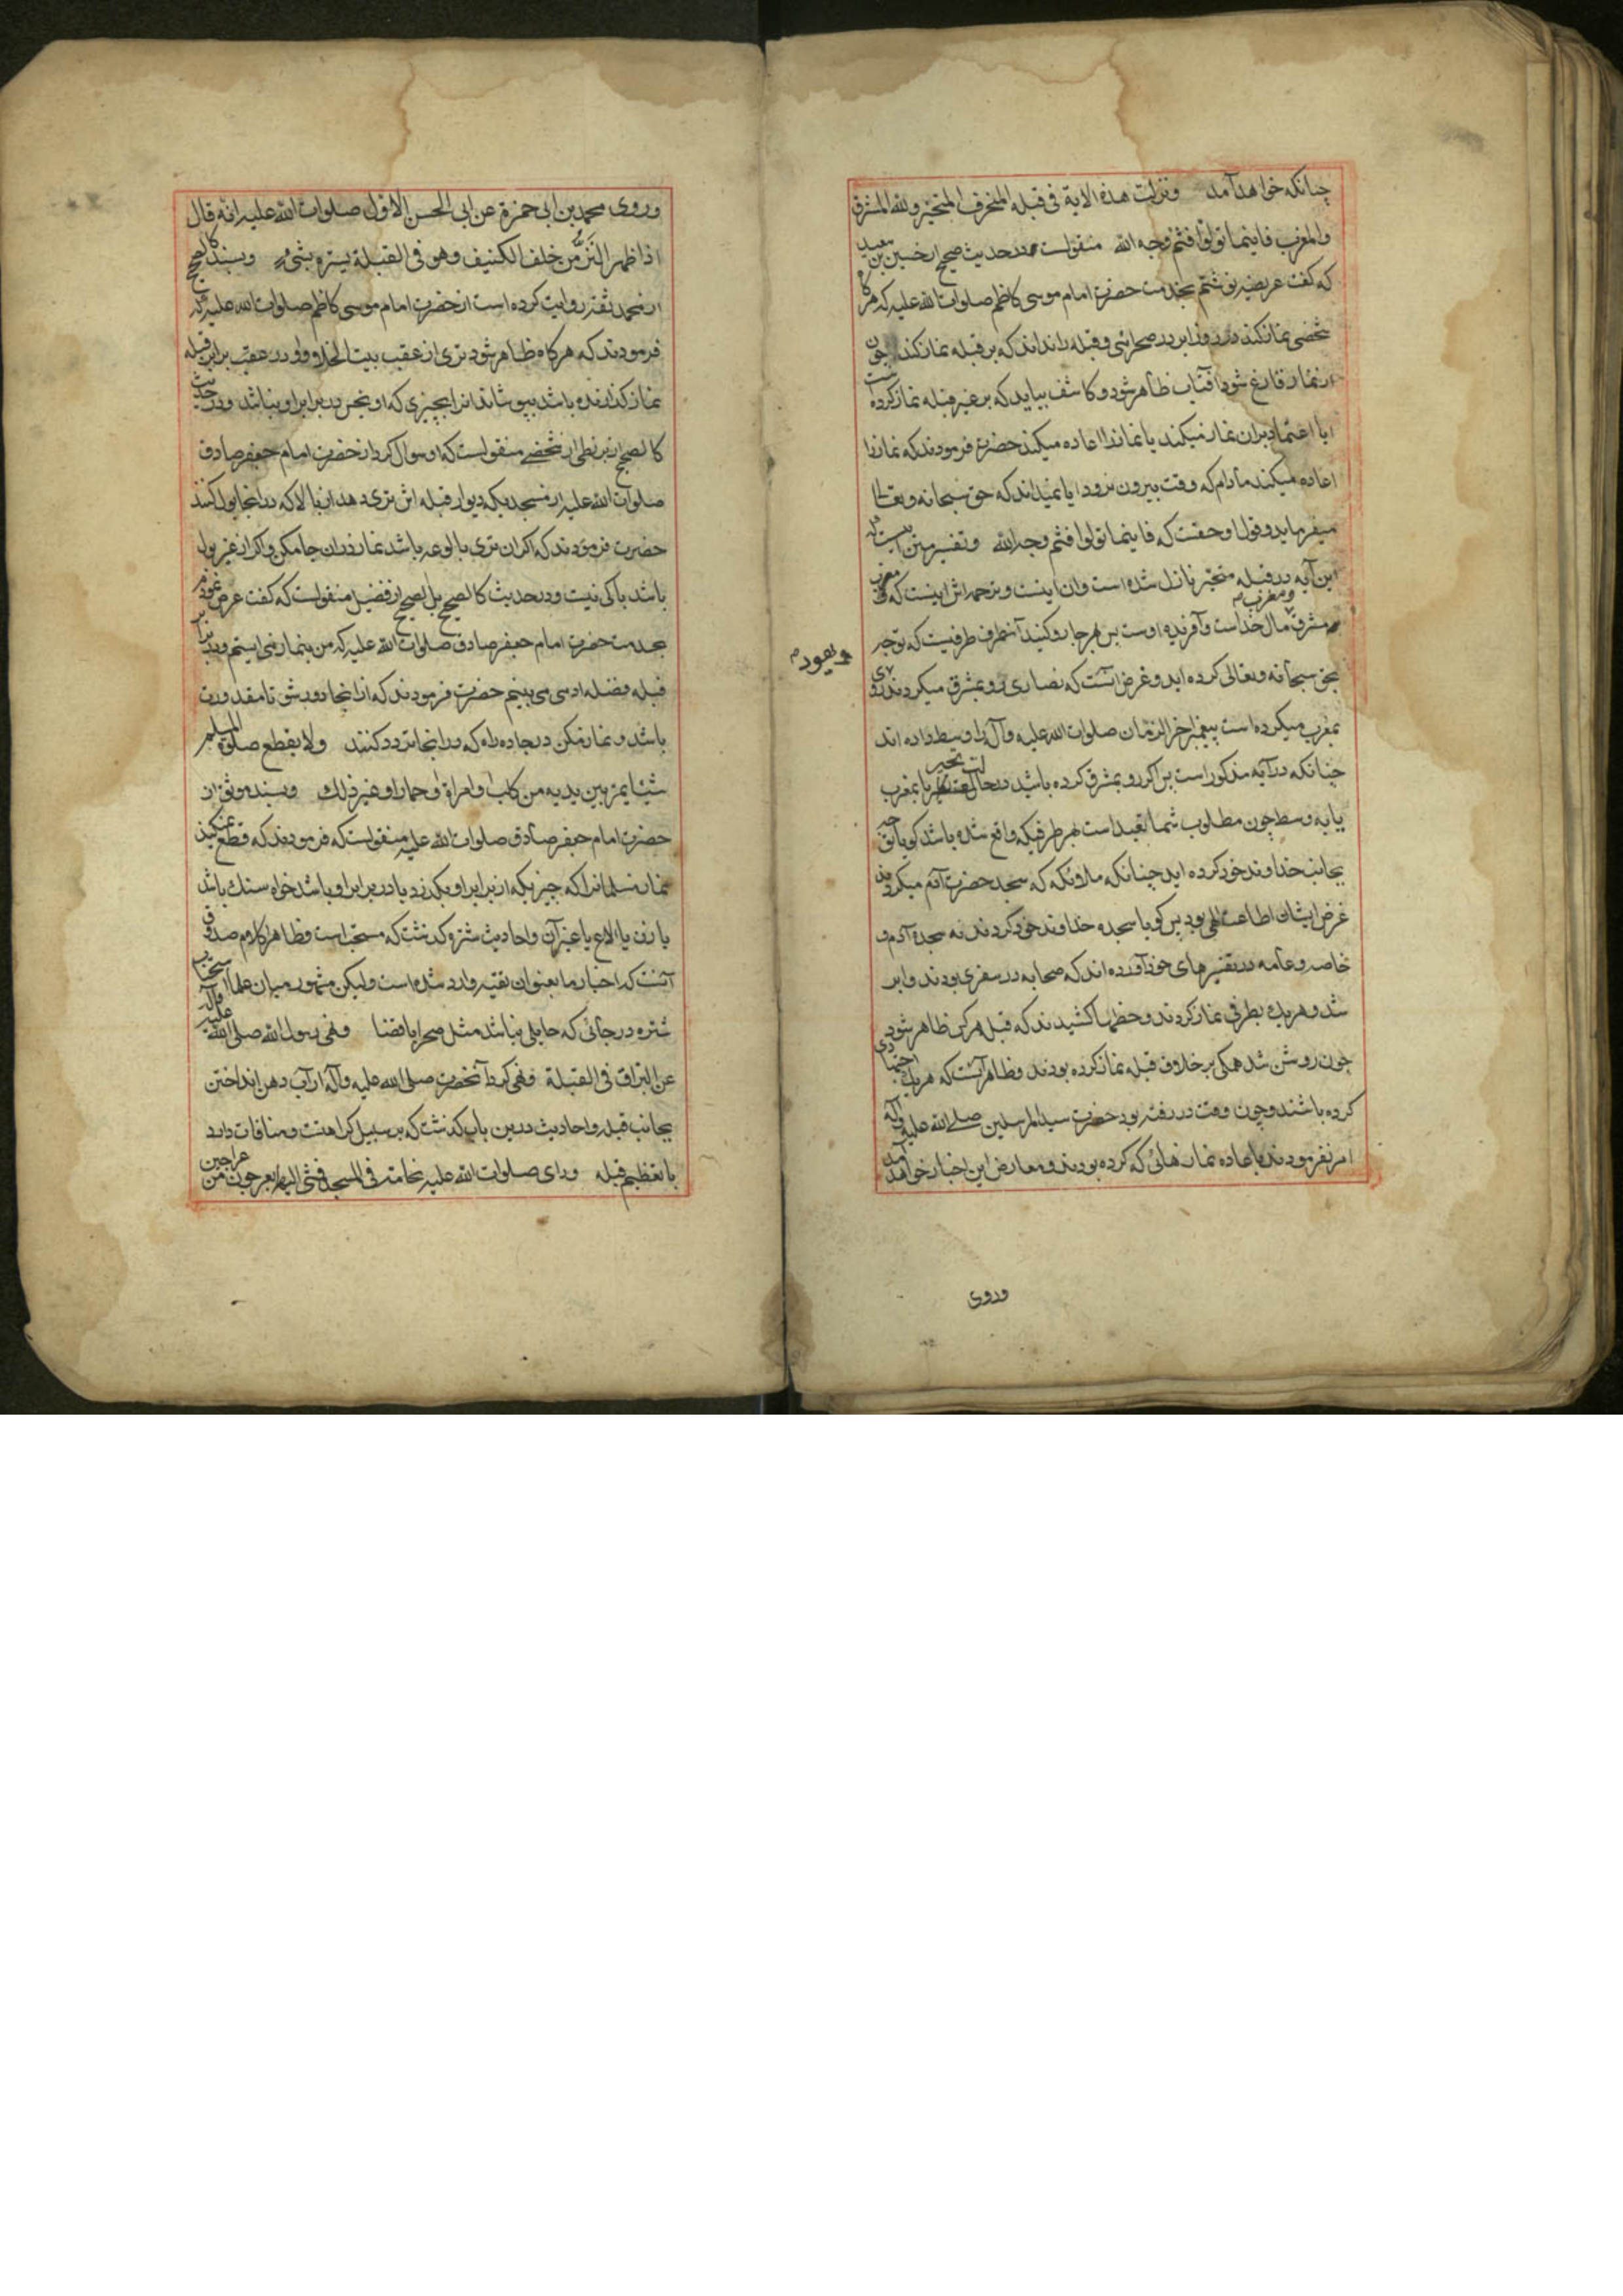 چنانکه خواهد آمد ونزلت هذه الایة فی قبلة المنحرف المتحیر ولله المشرق
والمغرب فاینما تولوا فثم وجه الله منقولست در حدیث صحیح از حسین بن سعید
که گفت عریضه نوشتم بخدمت حضرت امام موسی کاظم صلوات الله علیه که هرگاه
شخصی نماز کند در روز ابر در صحرائی و قبله را نداند که بر قبله نماز کند چون
از نماز فارغ شود افتاب ظاهر شود و کاشف بیاید که بر غیر قبله نماز کرده است
ایا اعتماد بران نماز میکند یا نماز را اعاده میکند حضرت فرمودند که نماز را
اعاده میکند مادام که وقت بیرون نرود ایا نمیداند که حق سبحانه وتعالی
میفرماید وقول او حقست که فاینما تولوا فثم وجه الله وتفسیر همین است که
این آیه در قبله متحیر نازل شده است وان اینست وترجمه اش اینست که
مشرق ومغرب مال خداست وآفریده اوست پس بهر جا رو کنید آنطرف طرفیست که توجه
بحق سبحانه وتعالی کرده اید وغرض آنست که نصاری رو بمشرق میکردند
ویهود م
بمغرب میکرده است پیغمبر اخر الزمان صلوات الله علیه وآله را وسط داده اند
چنانکه در آیه مذکور است پس اگر رو بمشرق کرده باشید در حالت تحیر یا بمغرب
یا به وسط چون مطلوب شما تعبد است بهر طرفیکه واقع شده باشد گویا توجه
بجانب خداوند خود کرده اید چنانکه ملائکه که سجده حضرت آدم میکردند
غرض ایشان اطاعت الهی بود پس گویا سجده خداوند خود کردند نه سجده آدم و
خاصه وعامه در تفسیرهای خود آورده اند که صحابه در سفری بودند وابر
شد وهر یک بطرفی نماز کردند وخطها کشیدند که قبله هر کس ظاهر شود
چون روشن شد همگی بر خلاف قبله نماز کرده بودند وظاهر آنست که هر یک اجتهادی
کرده باشند وچون وقت در رفته بود حضرت سید المرسلین صلی الله علیه وآله
امر نفرمودند باعاده نمازهائی که کرده بودند ومعارض این اخبار خواهد آمد
وروی
وروی محمد بن ابی حمزة عن ابی الحسن الاول صلوات الله علیه انه قال
اذا ظهر النز من خلف الکنیف وهو فی القبلة یستره بشیء وبسند کالصحیح
از محمد ثقه روایت کرده است از حضرت امام موسی کاظم صلوات الله علیه که
فرمودند که هرگاه ظاهر شود تری از عقب بیت الخلا واو در عقب برابر قبله
نماز گذارنده باشد بپوشاند انرا بچیزی که او نجس در برابر او نباشد ودر حدیث
کالصحیح از بزنطی از شخصی منقولست که او سوال کرد از حضرت امام جعفر صادق
صلوات الله علیه از مسجدیکه دیوار قبله اش تری دهد از بالا که در انجا بول کنند
حضرت فرمودند که اگر ان تری بالوعه باشد نماز در ان جا مکن واگر از غیر بول
باشد باکی نیست ودر حدیث کالصحیح بل الصحیح از فضیل منقولست که گفت عرض نمودم
بخدمت حضرت امام جعفر صادق صلوات الله علیه که من بنماز می ایستم ودر برابر
قبله فضله ادمی می بینم حضرت فرمودند که از انجا دور شو تا مقدورت
باشد ونماز مکن در جاده راه که در انجا تردد کنند ولا یقطع صلوة المسلم
شیئا یمر بین یدیه من کلب او امراة او حمار او غیر ذلک وبسند موثق از
حضرت امام جعفر صادق صلوات الله علیه منقولست که فرمودند که قطع نمیکند
نماز مسلمانرا که چیزیکه از برابر او بگذرد یا در برابر او باشد خواه سک باشد
یا زن یا الاغ یا غیر آن واحادیث ستره گذشت که مستحبست وظاهر کلام صدوق
آنست که اخبار ما بعنوان تقیه وارد شده است ولیکن مشهور میان علما استحباب
ستره در جائی که حایلی نباشد مثل صحرا یا فضا ونهی رسول الله صلی الله علیه وآله
عن البزاق فی القبلة ونهی کرد آنحضرت صلی الله علیه وآله از آب دهن انداختن
بجانب قبله واحادیث درین باب گذشت که بر سبیل کراهتست ومنافات دارد
با تعظیم قبله ورای صلوات الله علیه نخامة فی المسجد فمشی الیها بعرجون من عراجین